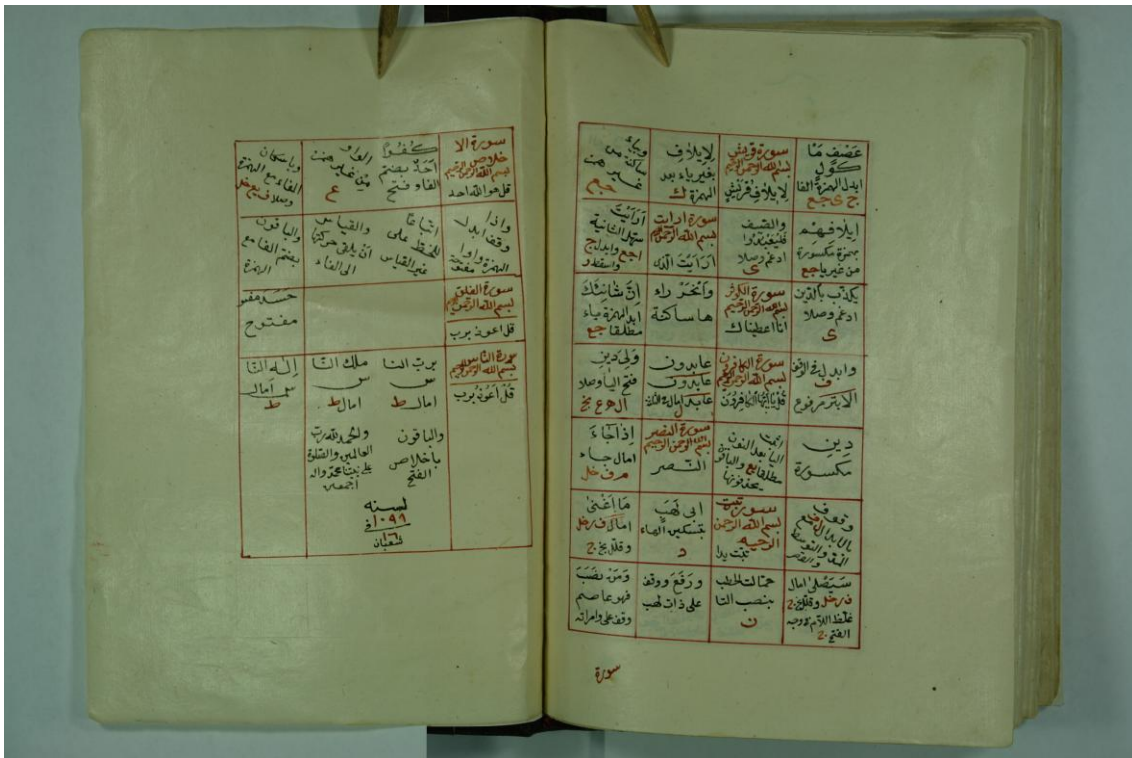 عصف مأ
كول
ابدل الهمزة الفا
ج ى جع
سورة قريش
بسم الله الرحمن الرحيم
لإيلاف قريش
لإيلاف
بغير ياء بعد
الهمزة ك
وبياء
ساكنة من
غير همز
جع
إيلافهم
بهمزة مكسورة
من غير يا جع
والصيف
فليعبدوا
ادغم وصلا
ى
سورة ارايت
بسم الله الرحمن الرحيم
ارايت الذى
أرايت
سهل الثانية
اجع وابدل ج
واسقط ر
يكذب بالدين
ادغم وصلا
ى
سورة الكوثر
بسم الله الرحمن الرحيم
انا اعطيناك
وانحر راء
ها ساكنة
ان شانئك
ابدل الهمزة ياء
مطلقا جع
وابدل فى الوقف
ف
الابتر مرفوع
سورة الكافرون
بسم الله الرحمن الرحيم
قل يا ايها الكافرون
عابدون
عابدون
عابد
ولى دين
فتح اليا وصلا
دين
مكسورة
اليا بعد النون
مطلقا
يحذفونها
سورة النصر
بسم الله الرحمن الرحيم
النصر
اذا جاء
امال جاء
وقوف
والتوسط
والقصر
سورة تبت
بسم الله الرحمن
الرحيم
تبت يدا
ابى لهب
بتسكين الهاء
د
ما اغنى
امال
وقلل
سيصلى امال
غلظ اللام
الفتح
حمالت الحطب
بنصب التا
ن
ورفع ووقف
على ذات لهب
ومن نصب
فهو عاصم
وقف على وامراته
سورة
سورة الا
خلاص
بسم الله الرحمن الرحيم
قل هو الله احد
كفوا
احد بضم
الفا وفتح
الواو
من غير همز
ع
وباسكان
الفاء مع الهمزة
واذا
وقف ابدل
الهمزة واوا
مفتوحة
اتباعا
للخط على
غير القياس
والقياس
ان يلقى حركتها
الى الفاء
والباقون
بضم الفا مع
الهمزة
سورة الفلق
بسم الله الرحمن الرحيم
قل اعوذ برب
حسد
مفتوح
سورة الناس
بسم الله الرحمن الرحيم
قل أعوذ برب
برب النا
س
امال ط
ملك النا
س
امال ط
إله النا
س امال
ط
والباقون
باخلاص
الفتح
والحمد لله رب
العالمين والصلوة
على نبينا محمد واله
اجمعين
لسنه
١٠٩٨
شعبان